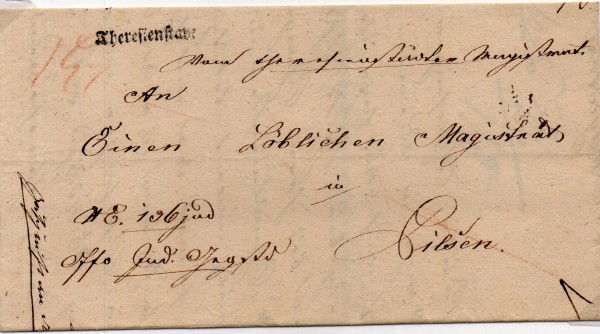 Theresienstadt
Vom theresienstädter Magistrat.
An
Einen Löblichen Magistrat
in
Pilsen.
NE. 136 jud
Jud.